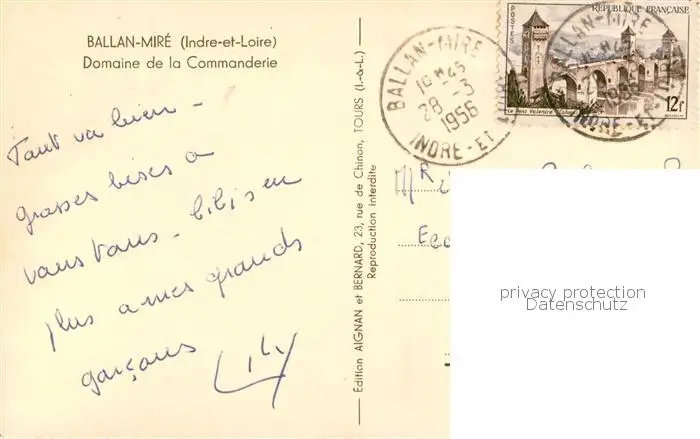 BALLAN-MIRÉ (Indre-et-Loire)
Domaine de la Commanderie
Tout va bien -
grosses bises a
vous tous - bibis en
plus a mes grands
garçons
Lily
Edition AIGNAN et BERNARD, 23, rue de Chinon, TOURS (I.-&-L.)
Reproduction interdite
BALLAN-MIRÉ
10H45
28-3
1956
INDRE-ET-LOIRE
POSTES
REPUBLIQUE FRANÇAISE
Le Pont Valentré Cahors
12F
BALLAN-MIRÉ
1956
INDRE-ET-L
Mr
privacy protection
Datenschutz